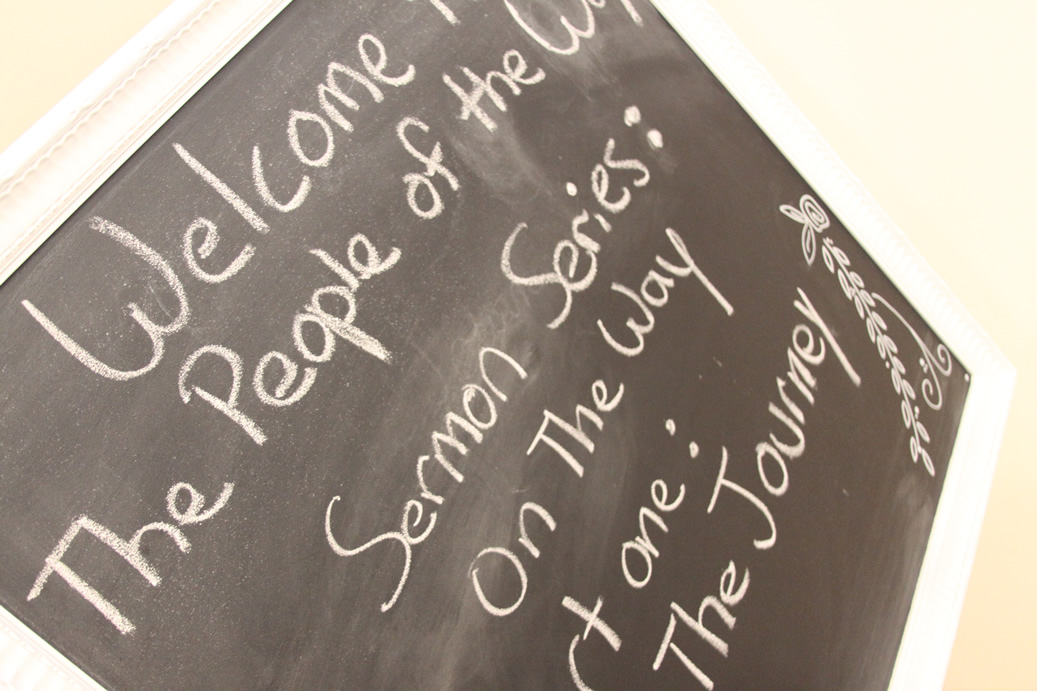 Welcome
The People of the Way
Sermon Series:
On The Way
one:
The Journey